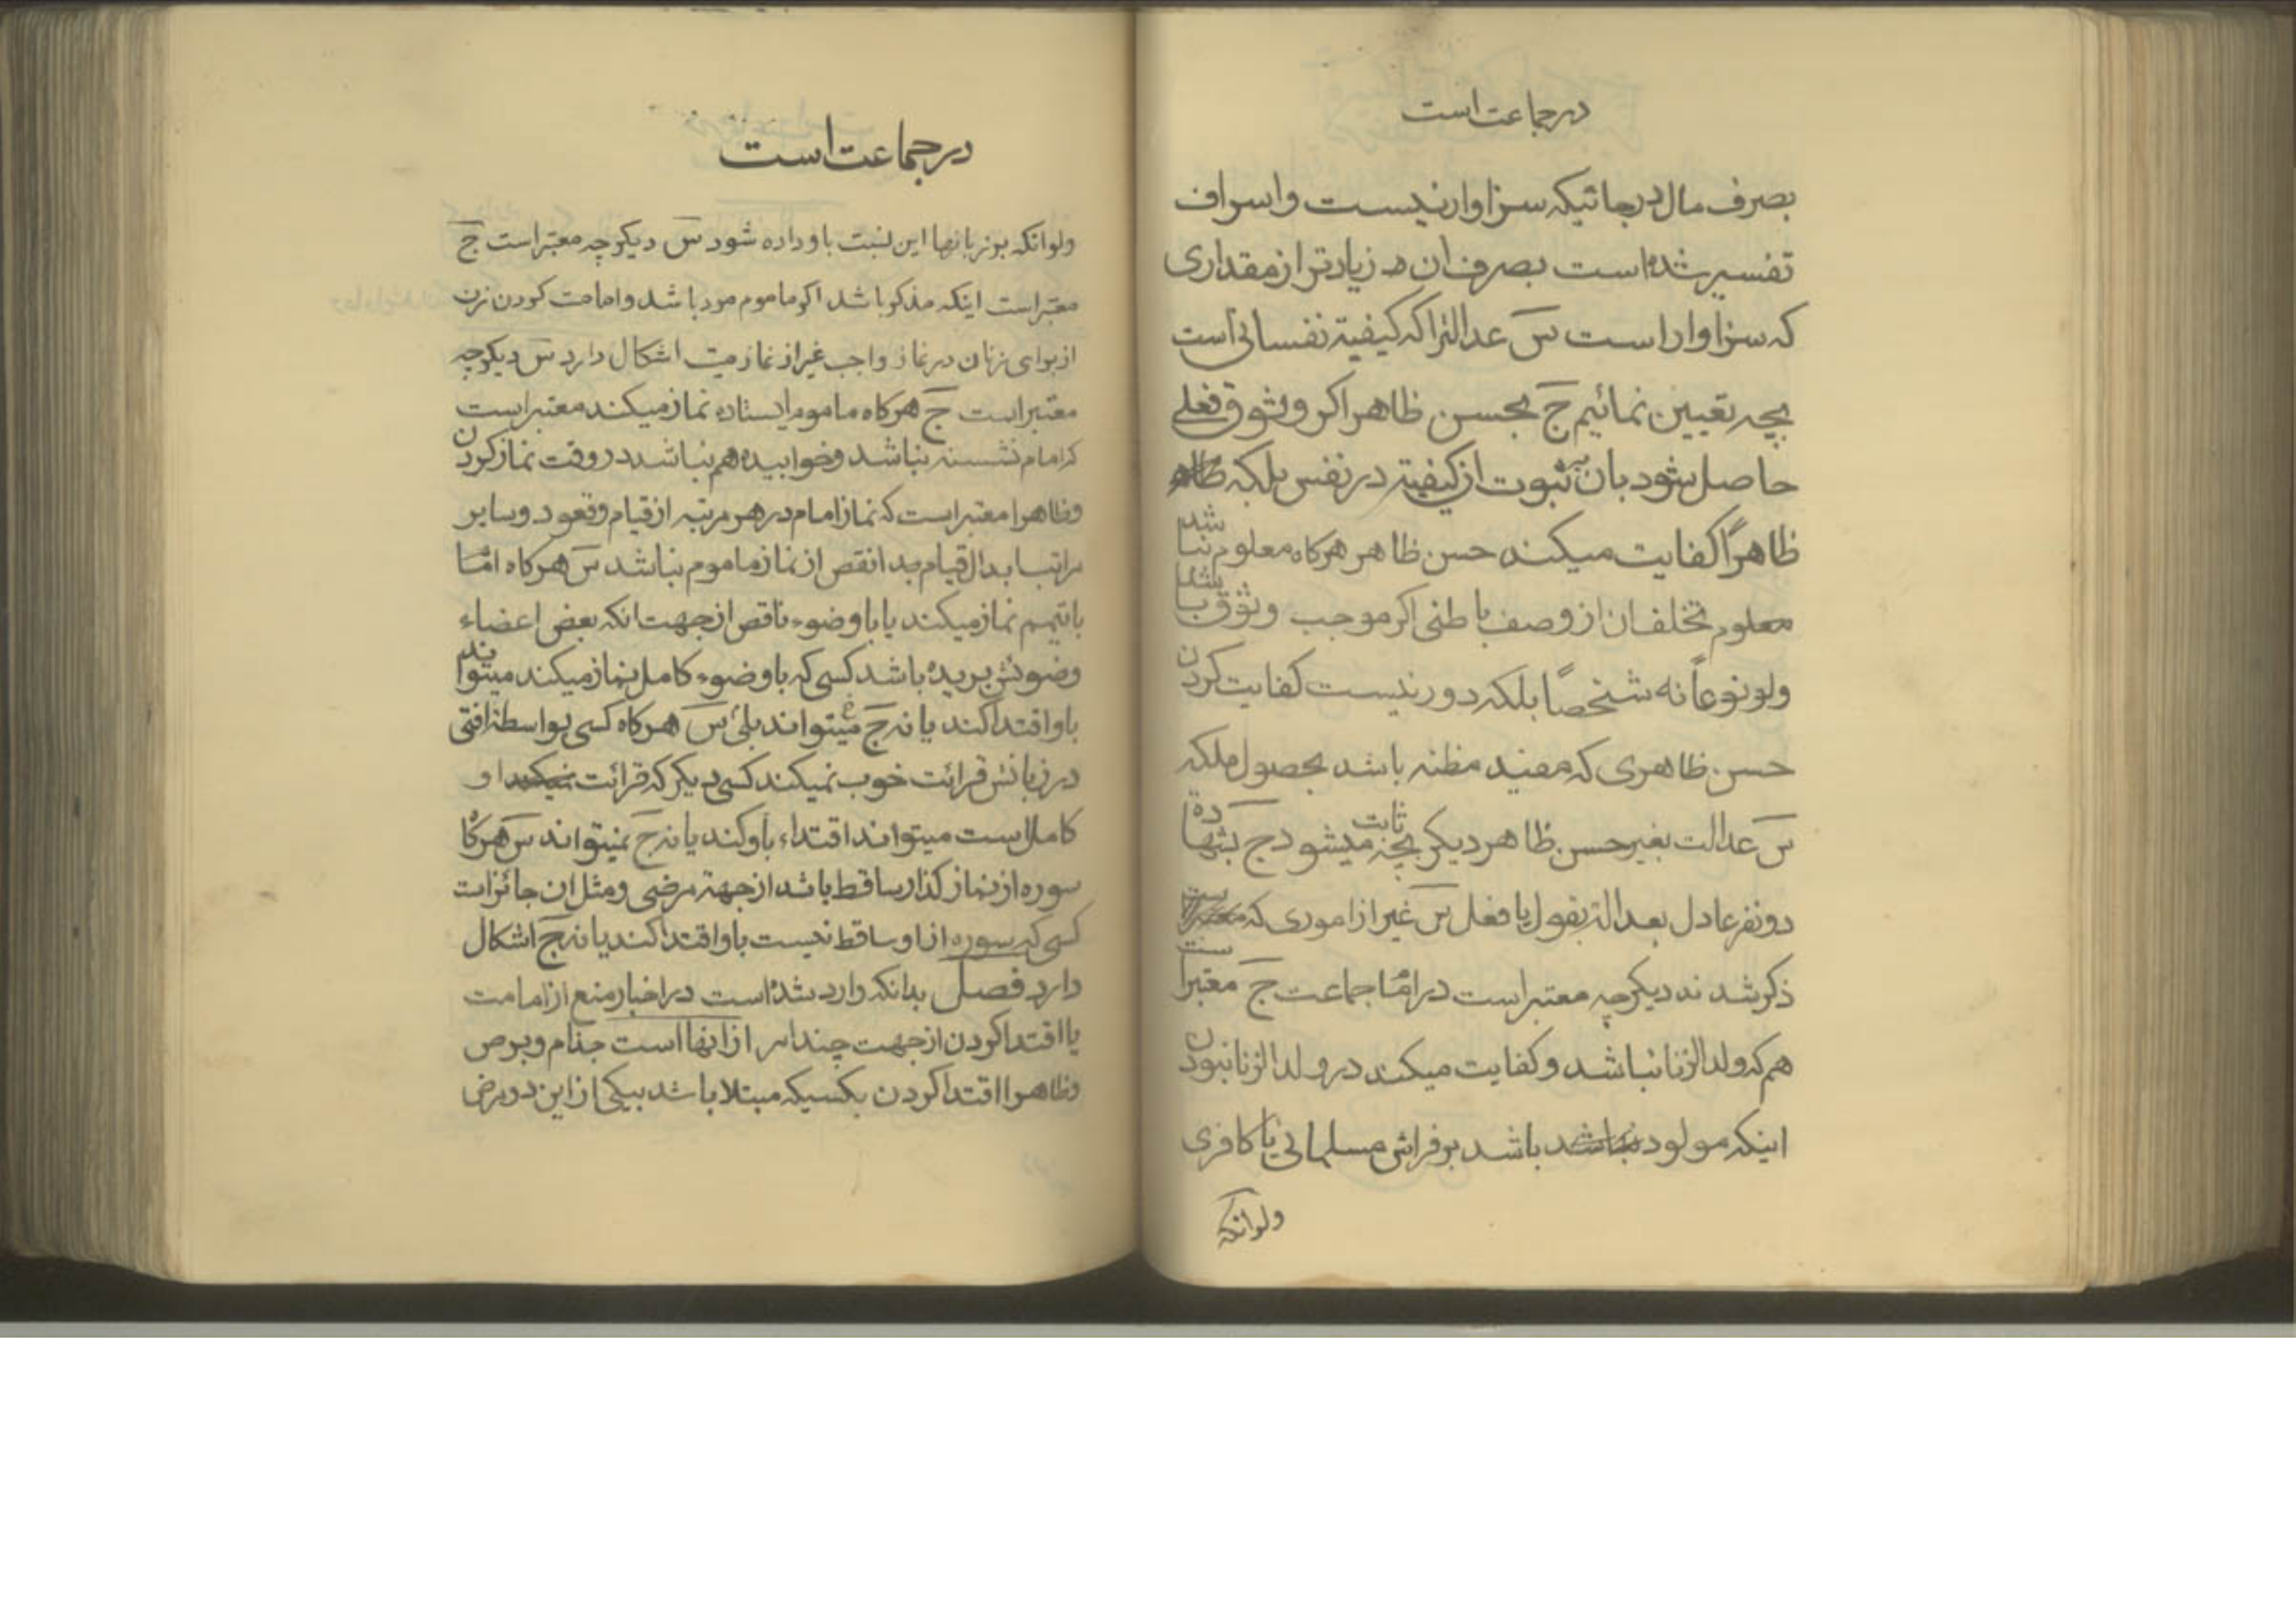 در جماعت است
بصرف مال در جائیکه سزاوار نیست و اسراف
تفسیر شده است بصرف ان در زیادتر از مقداری
که سزاوار است س عدالترا که کیفیة نفسانی است
بچه تعیین نمائیم ج بحسن ظاهر اکر وثوق فعلی
حاصل شود بان ثبوت از کیفیة در نفس بلکه
ظاهراً کفایت میکند حسن ظاهر هرکاه معلوم نباشد
معلوم تخلف ان از وصف باطنی اکر موجب وثوق باشد
ولو نوعاً نه شخصاً بلکه دور نیست کفایت کردن
حسن ظاهری که مفید مظنه باشد بحصول ملکه
س عدالت بغیر حسن ظاهر دیکر بچه ثابت میشود ج بشهادة
دو نفر عادل بعدالة بقول یا فعل س غیر از اموری که
ذکر شدند دیکر چه معتبر است در امام جماعت ج معتبر است
هم که ولد الزنا نباشد و کفایت میکند در ولد الزنا نبودن
اینکه مولود باشد بر فراش مسلمانی یا کافری
ولو انکه
در جماعت است
ولو انکه بر زبانها این نسبت باو داده شود س دیکر چه معتبر است ج
معتبر است اینکه مذکر باشد اکر ماموم مرد باشد و امامت کردن زن
از برای زنان در نماز واجب غیر از نماز میت اشکال دارد س دیکر چه
معتبر است ج هرکاه ماموم ایستاده نماز میکند معتبر است
که امام نشسته نباشد و خوابیده هم نباشد در وقت نماز کردن
و ظاهرا معتبر است که نماز امام در هر مرتبه از قیام و قعود و سایر
مراتب ابدال قیام بد انقص از نماز ماموم نباشد س هرکاه امام
با تیمم نماز میکند یا با وضوء ناقص از جهت انکه بعض اعضاء
وضوئش بریده باشد کسی که با وضوء کامل نماز میکند میتواند
باو اقتدا کند یا نه ج میتواند بلی س هرکاه کسی بواسطة افتی
در زبانش قرائت خوب نمیکند کسی دیکر که قرائت او
کامل است میتواند اقتداء باو کند یا نه ج نمیتواند س هرکاه
سوره از نماز کذار ساقط باشد از جهة مرضی و مثل ان جائز است
کسی که سوره از او ساقط نیست باو اقتدا کند یا نه ج اشکال
دارد فصل بدانکه وارد شده است در اخبار منع از امامت
یا اقتدا کردن از جهت چند امر از انها است جذام و برص
و ظاهرا اقتدا کردن بکسیکه مبتلا باشد بیکی از این دو مرض